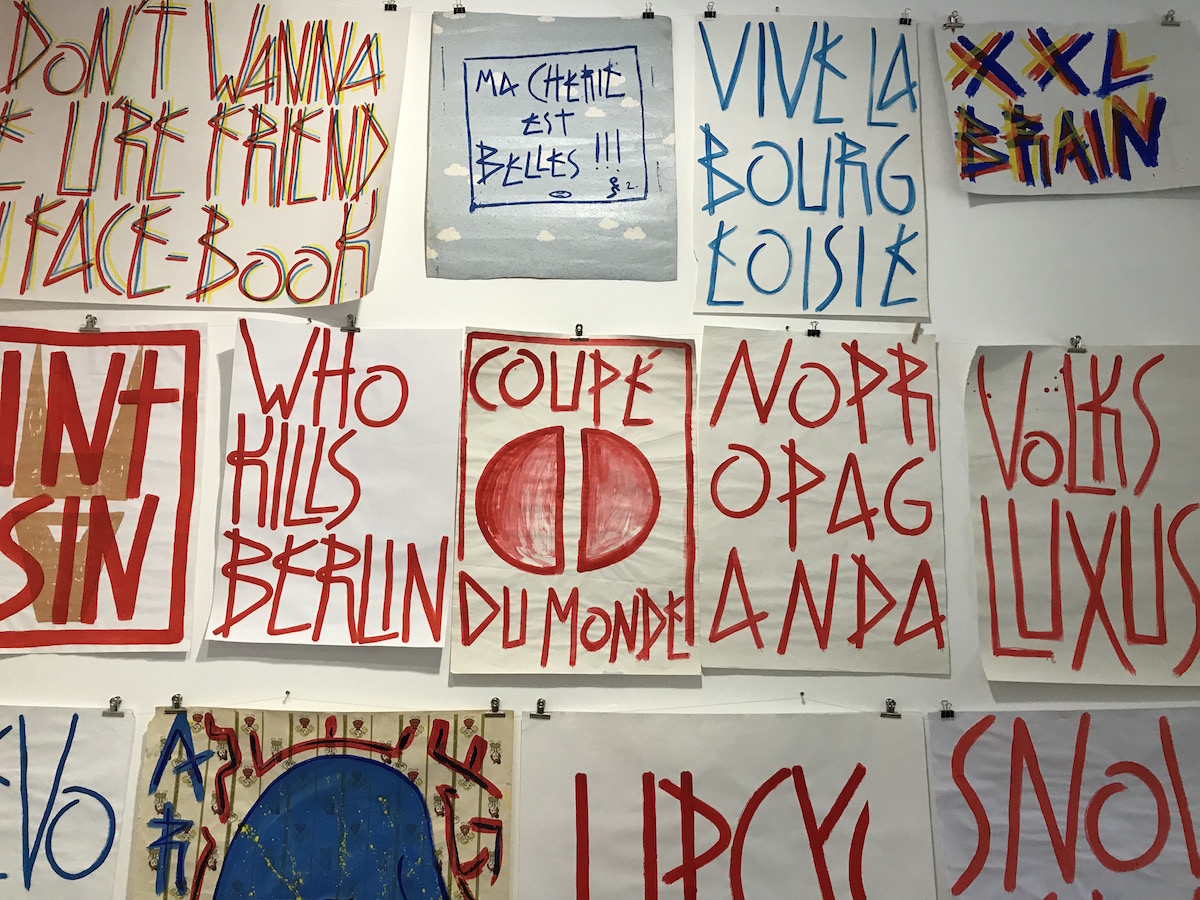 DON'T WANNA
E URE FRIEND
FACE-BOOK
MA CHERIE
EST
BELLES !!!
VIVE LA
BOURG
EOISIE
XXL
BRAIN
INT
SIN
WHO
KILLS
BERLIN
COUPÉ
DU MONDE
NOPR
OPAG
ANDA
VOLKS
LUXUS
EVO
AR
UPCYC
SNOW